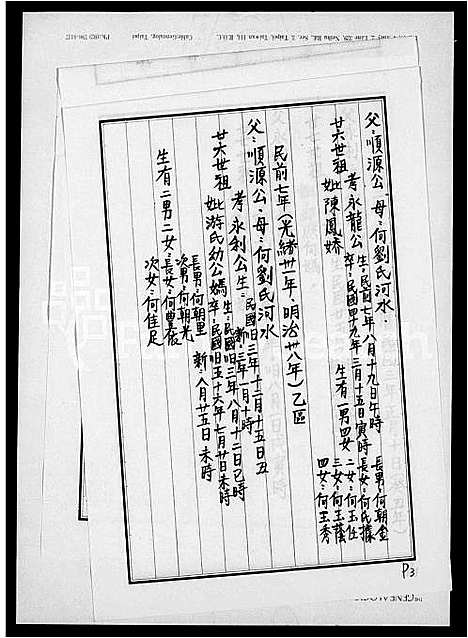 父：順源公、母：何劉氏河水．
考永龍公 生：民前七年八月十九日午時 長男：何朝金
卒：民國四九年三月十五日寅時 長女：何氏檬
廿六世祖 妣陳鳳嬌 生有一男四女 二女：何玉任
三女：何玉蔭
四女：何玉秀
民前七年（光緒卅一年，明治卅八年）乙區
父：順源公、母：何劉氏河水
考永利公生：民國旧三年十二月十五日丑
新：三年一月十時
廿六世祖 生：民國旧三年八月十二日巳時
妣游氏幼公嬀 卒：民國旧五十六年七月廿日未時
新：八月廿五日未時
長男：何朝里
次男：何朝光
生有二男二女：長女：何豐
次女：何佳足
P3